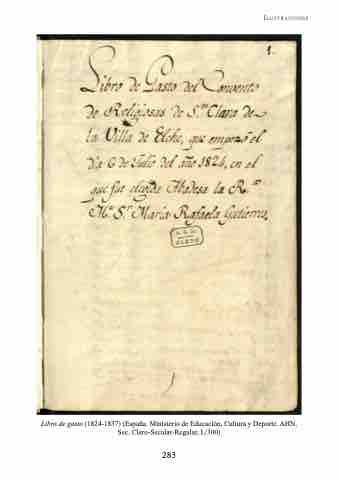 ILUSTRACIONES
1.
Libro de Gasto del Convento
de Religiosas de S.ta Clara de
la Villa de Elche, que empezó el
dia 6 de Julio del año 1824, en el
que fue elegida Abadesa la R.
M.e S.r Maria Rafaela Gutierrez,
A.H.N.
CLERO
Libro de gasto (1824-1837) (España. Ministerio de Educación, Cultura y Deporte. AHN,
Sec. Clero-Secular-Regular, L/300)
283